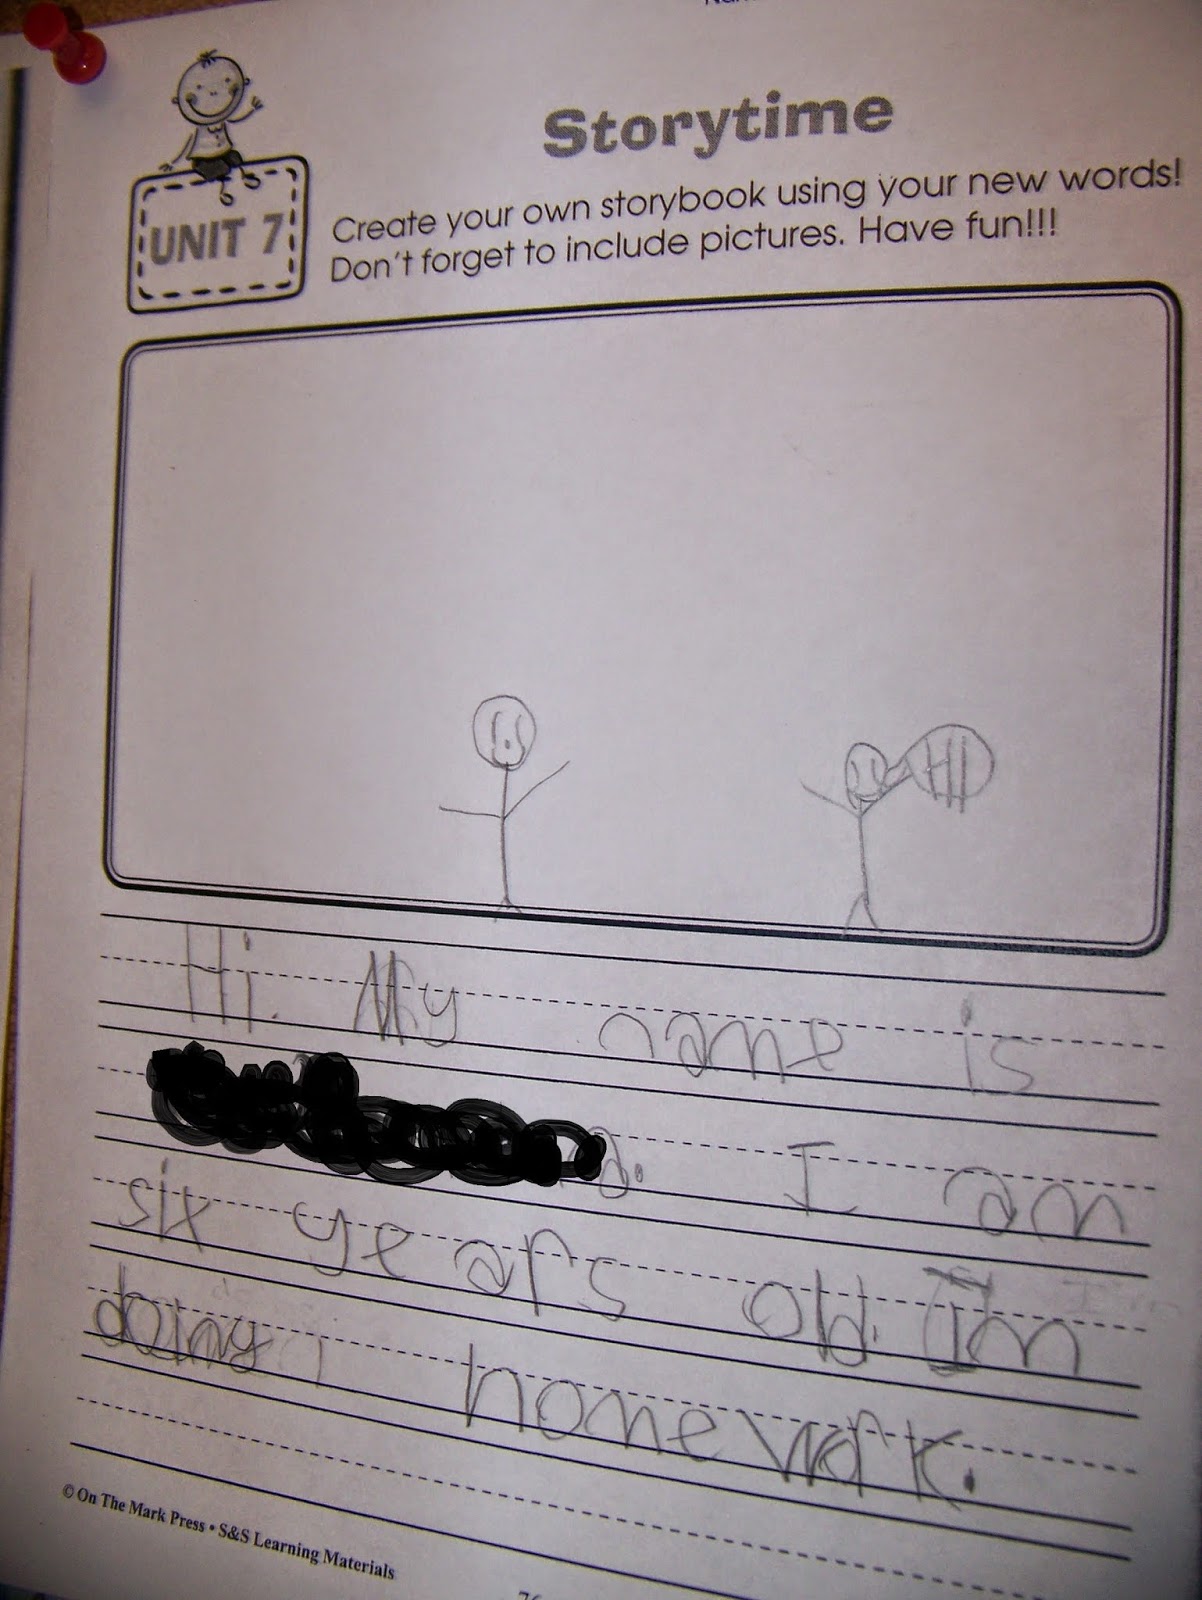 Storytime
UNIT 7
Create your own storybook using your new words!
Don't forget to include pictures. Have fun!!!
HI
Hi. My name is
I am
six years old. Im
doing homework.
© On The Mark Press • S&S Learning Materials